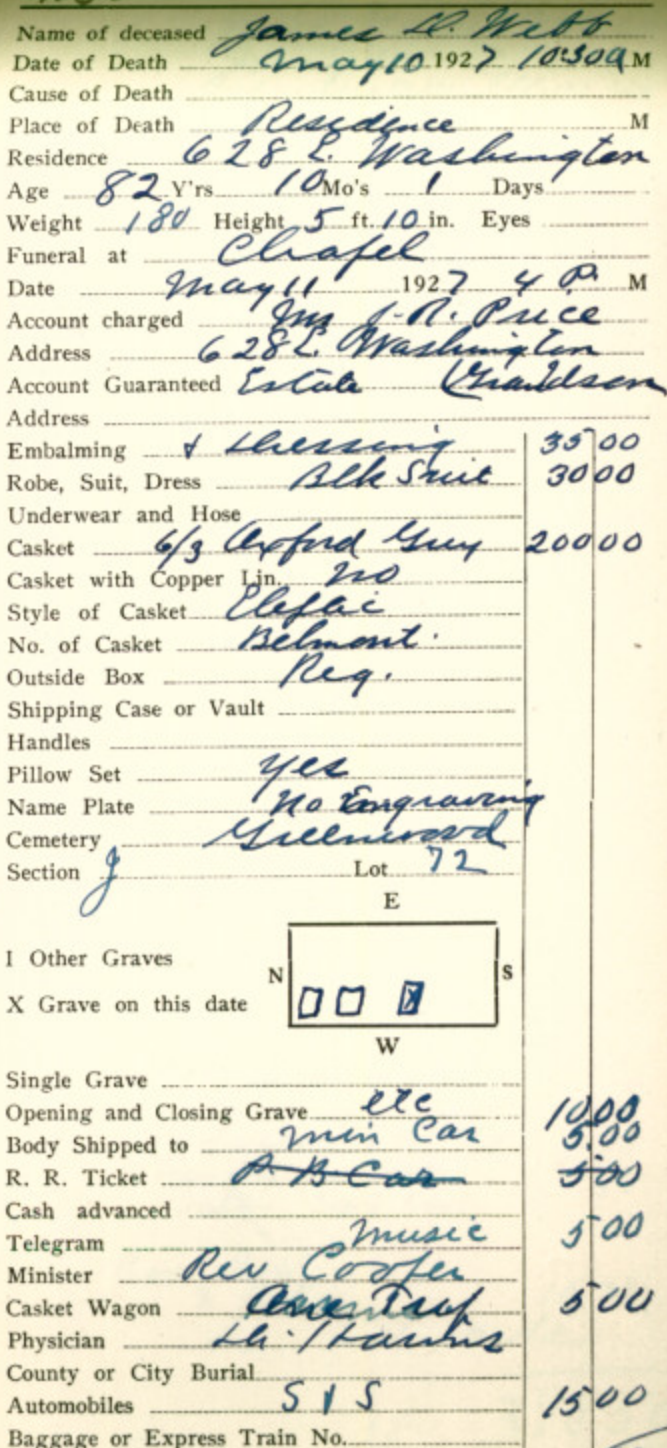 Name of deceased James H. Webb
Date of Death May 10 1927 10:30 a M
Cause of Death
Place of Death Residence M
Residence 628 E. Washington
Age 82 Y'rs 10 Mo's 1 Days
Weight 180 Height 5 ft. 10 in. Eyes
Funeral at Chapel
Date May 11 1927 4 P. M
Account charged J. R. Price
Address 628 E. Washington
Account Guaranteed Estate (Grandson
Address
Embalming & Dressing 35 00
Robe, Suit, Dress Blk Suit 30 00
Underwear and Hose
Casket 6/3 Oxford Grey 200 00
Casket with Copper Lin. no
Style of Casket Eliptic
No. of Casket Belmont.
Outside Box Reg.
Shipping Case or Vault
Handles
Pillow Set yes
Name Plate No Engraving
Cemetery Greenwood
Section J Lot 72
E
I Other Graves
N S
X Grave on this date
W
Single Grave
Opening and Closing Grave etc 10 00
Body Shipped to min Car 5.00
R. R. Ticket P B Car 5 00
Cash advanced
Telegram music 5 00
Minister Rev Cooper
Casket Wagon 5 00
Physician Dr.
County or City Burial
Automobiles S & S 15 00
Baggage or Express Train No.